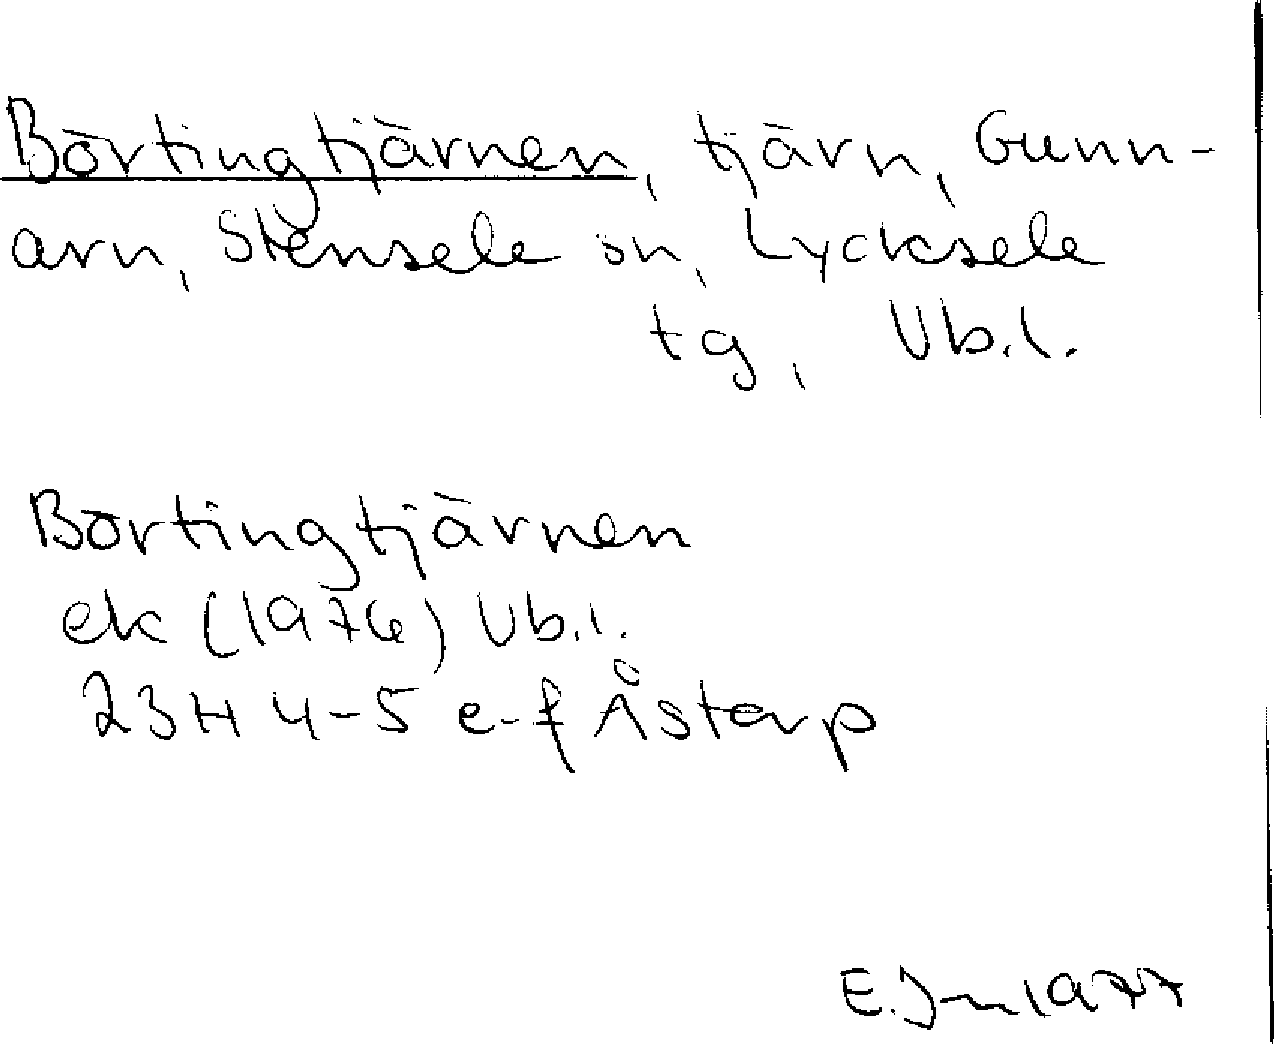 Börtingtjärnen, tjärn, Gunn-
arn, Stensele sn, Lycksele
tg, Vb.l.
Börtingtjärnen
ek (1976) Vb.l.
23H 4-5 e-f Åstorp
E. 1977